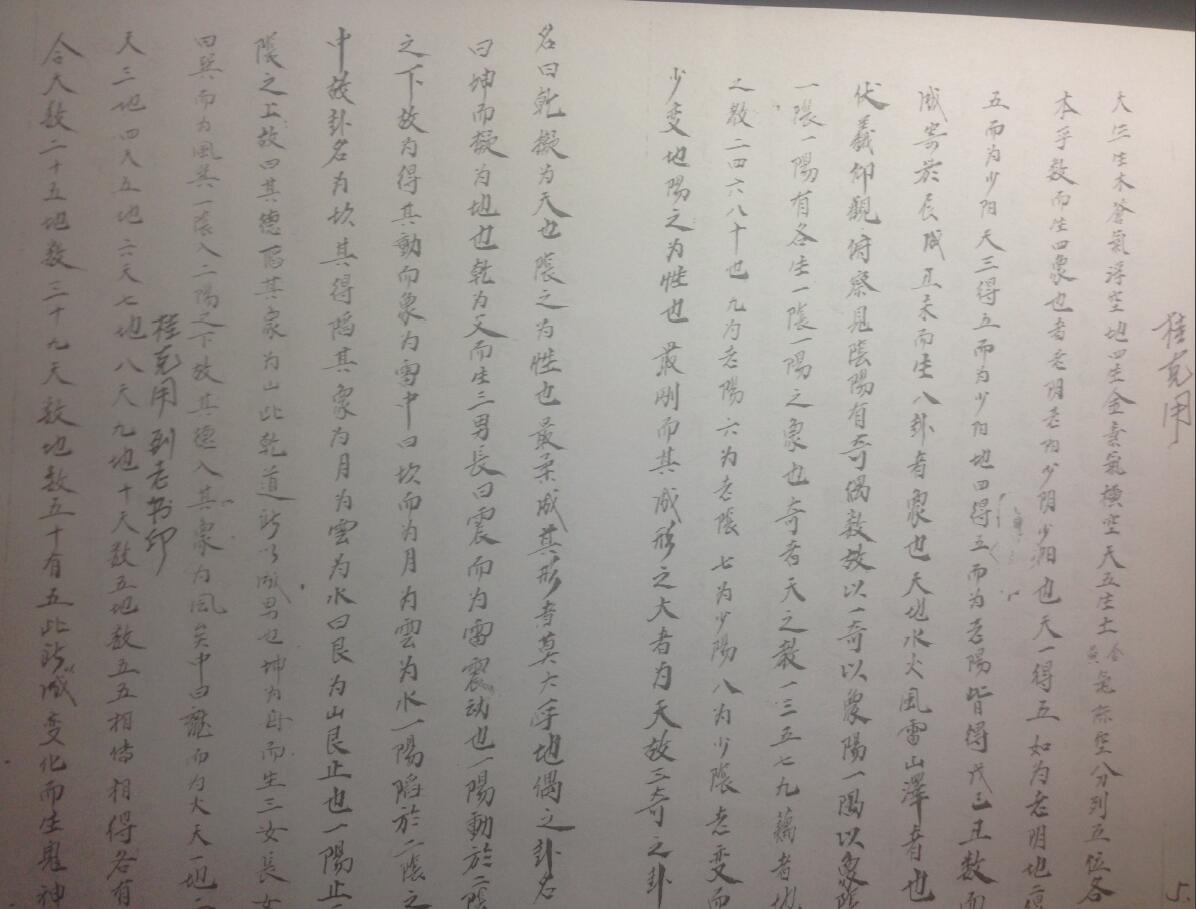 桂克用
大三生木蒼氣浮空地四生金素氣橫空天五生土黃氣亦空分列五位各
本乎数而生四象也者老阴老阳少阴少阳也天一得五如为老阴地二得
五而为少阳天三得五而为少阳地四得五而为老陽皆得戊己五数而
成寄於辰戌丑未而生八卦者象也天地水火風雷山澤者也
伏羲仰觀俯察見陰陽有奇偶数故以一奇以象陽一隅以象陰
一陰一陽有各生一陰一陽之象也奇者天之数一三五七九耦者地
之数二四六八十也九为老陽六为老陰七为少陽八为少陰老变而
少变地陽之为性也最刚而其成形之大者为天故三奇之卦
名曰乾擬为天也陰之为性也最柔成其形者莫大乎地偶之卦名
曰坤而擬为地也乾为父而生三男長曰震而为雷震动也一陽動於二陰
之下故为得其動而象为雷中曰坎而为月为雲为水一陽陷於二陰之
中故卦名为坎其得陷其象为月为雲为水曰艮为山艮止也一陽止
陰之上故曰其德陷其象为山此乾道所以成男也坤为母而生三女長女
曰巽而为風巽一陰入二陽之下故其德入其象为風矣中曰離而为火天一地二
桂克用 刘老书印
天三地四天五地六天七地八天九地十天数五地数五五相傳相得各有
令天数二十五地数三十九天数地数五十有五此所以成变化而生鬼神
5.